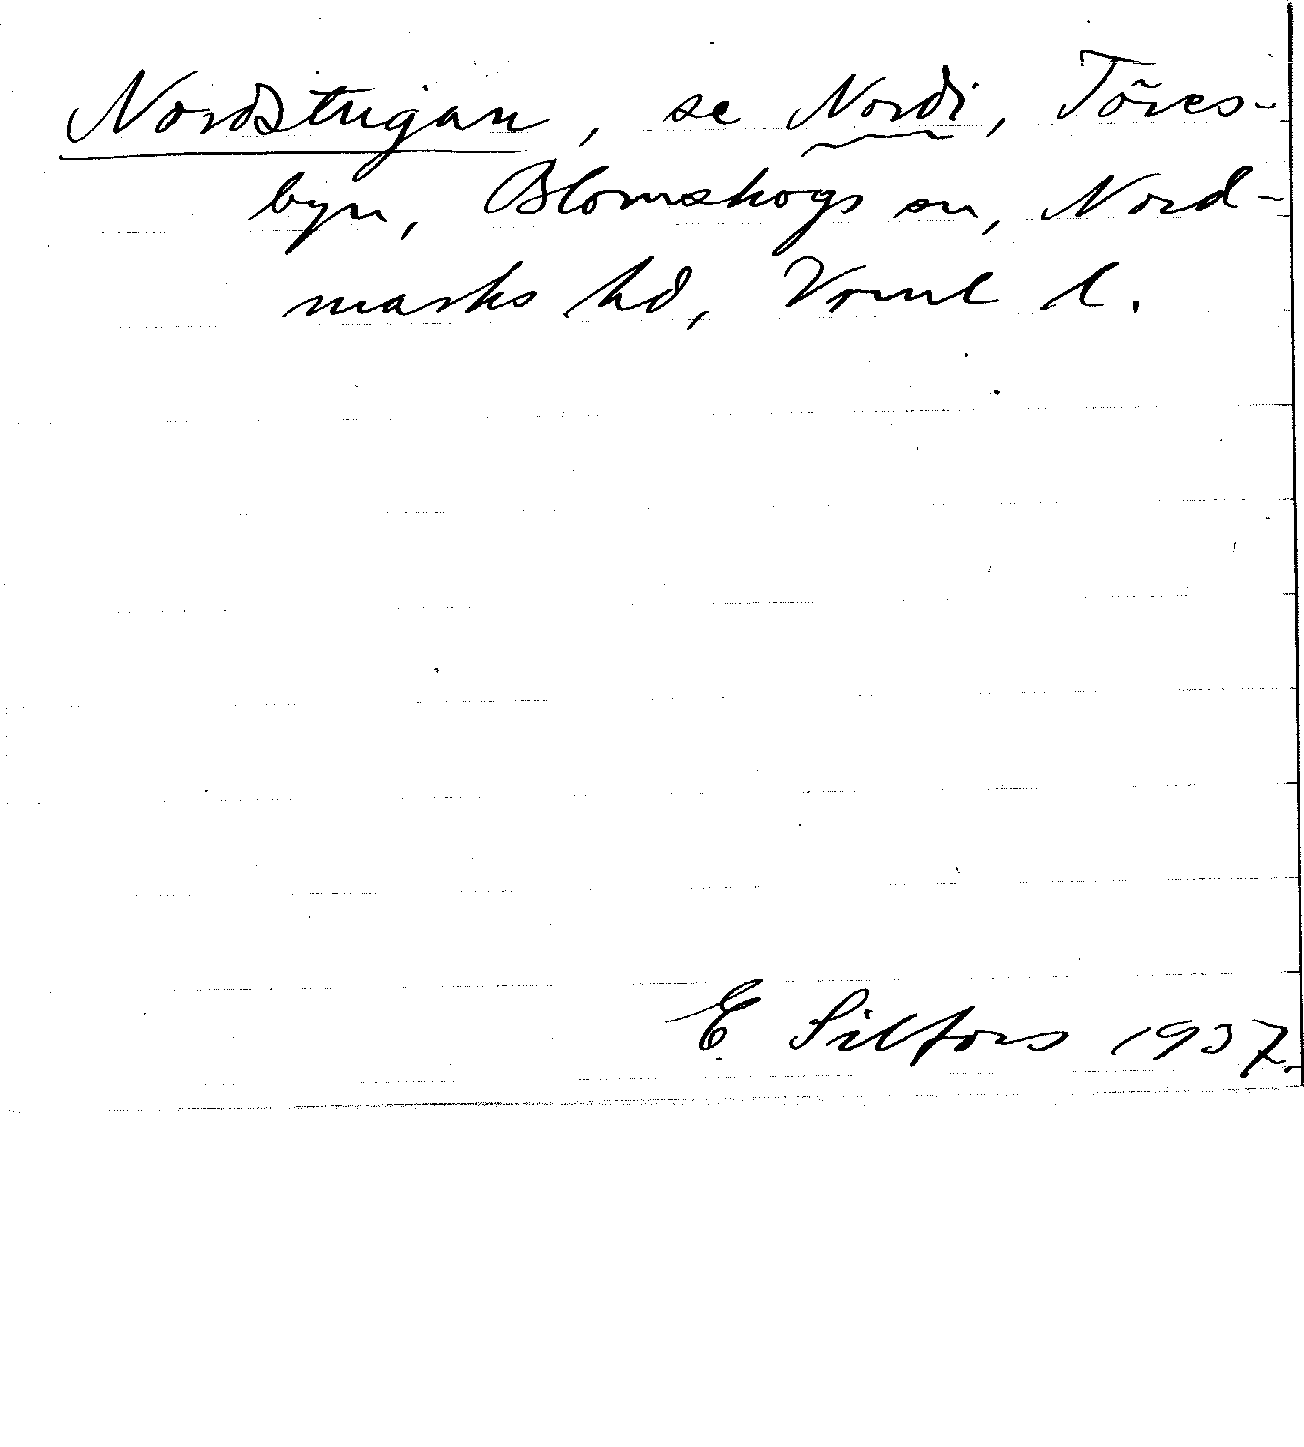 Nordstugan, se Nordi, Töres-
byn, Blomskogs sn, Nord-
marks hd, Vrml l.
E Silfors 1937.